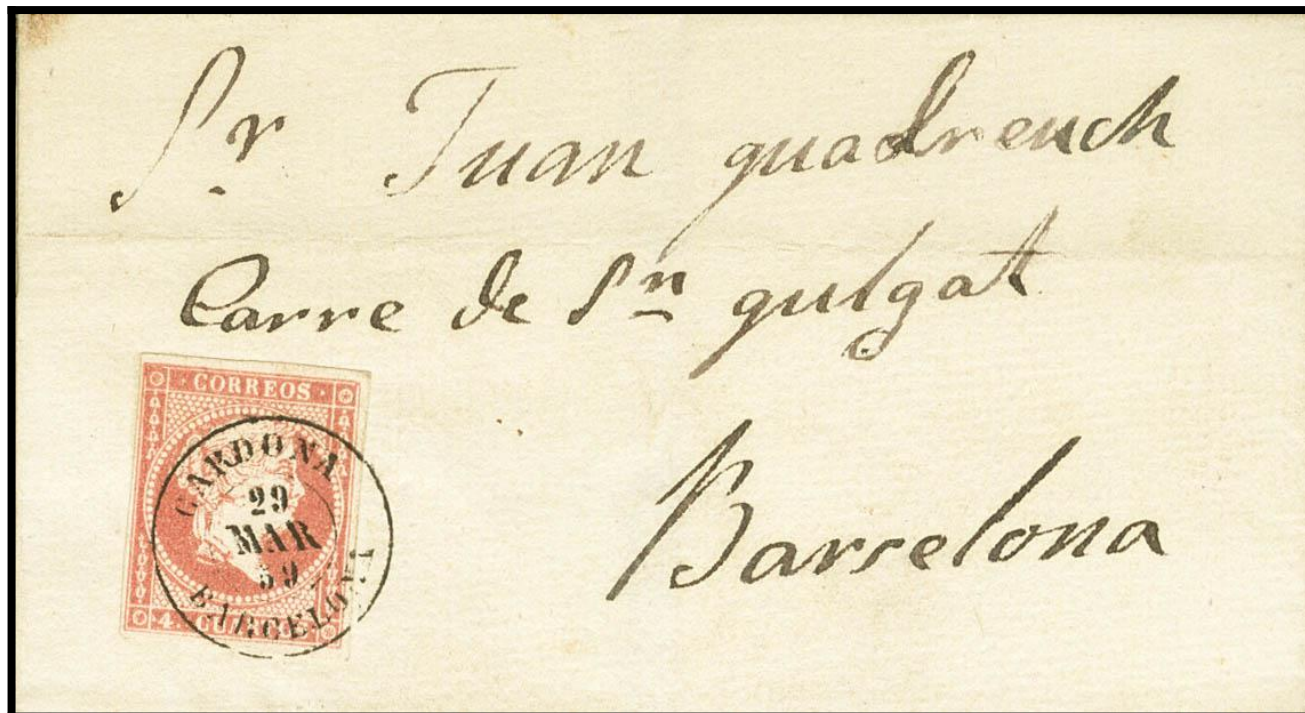 Sr Juan quadreuch
Carre de Sn qulgat
Barselona
CORREOS
CARDONA
29
MAR
59
BARCELONA
4 CUARTOS